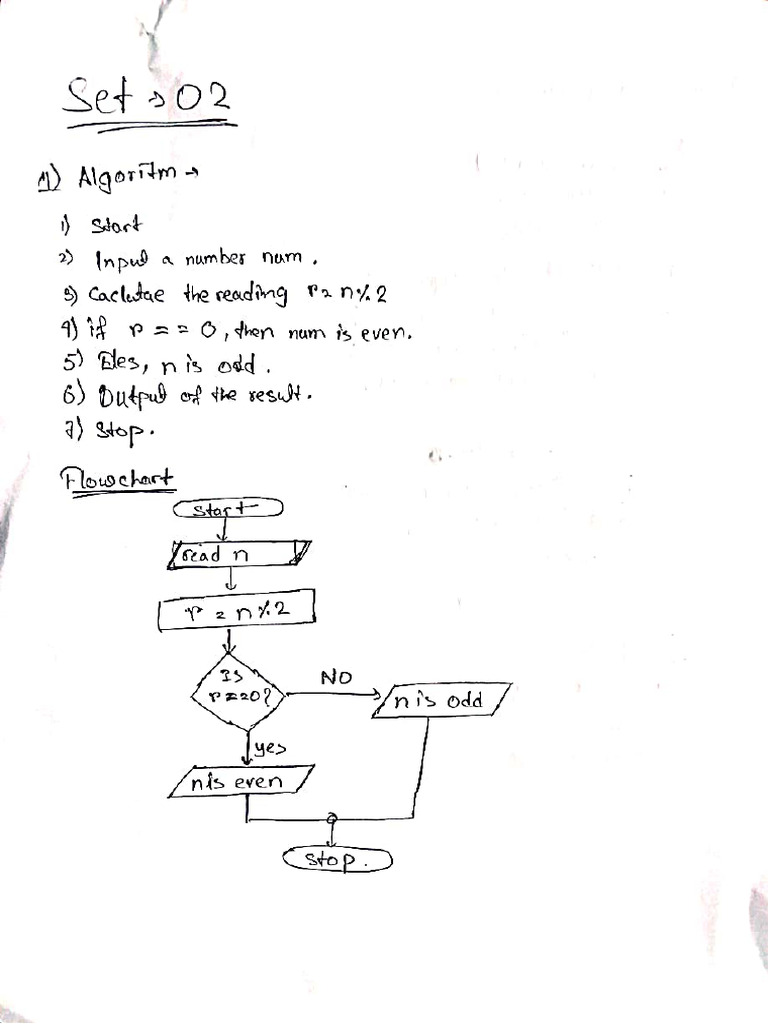 Set → 02
1) Algoritm →
1) Start
2) Input a number num.
3) Caclutae the reading r = n % 2
4) if r == 0, then num is even.
5) Eles, n is odd.
6) Output of the result.
7) Stop.
Flowchart
Start
read n
r = n % 2
Is
r == 0?
NO
n is odd
yes
n is even
stop.